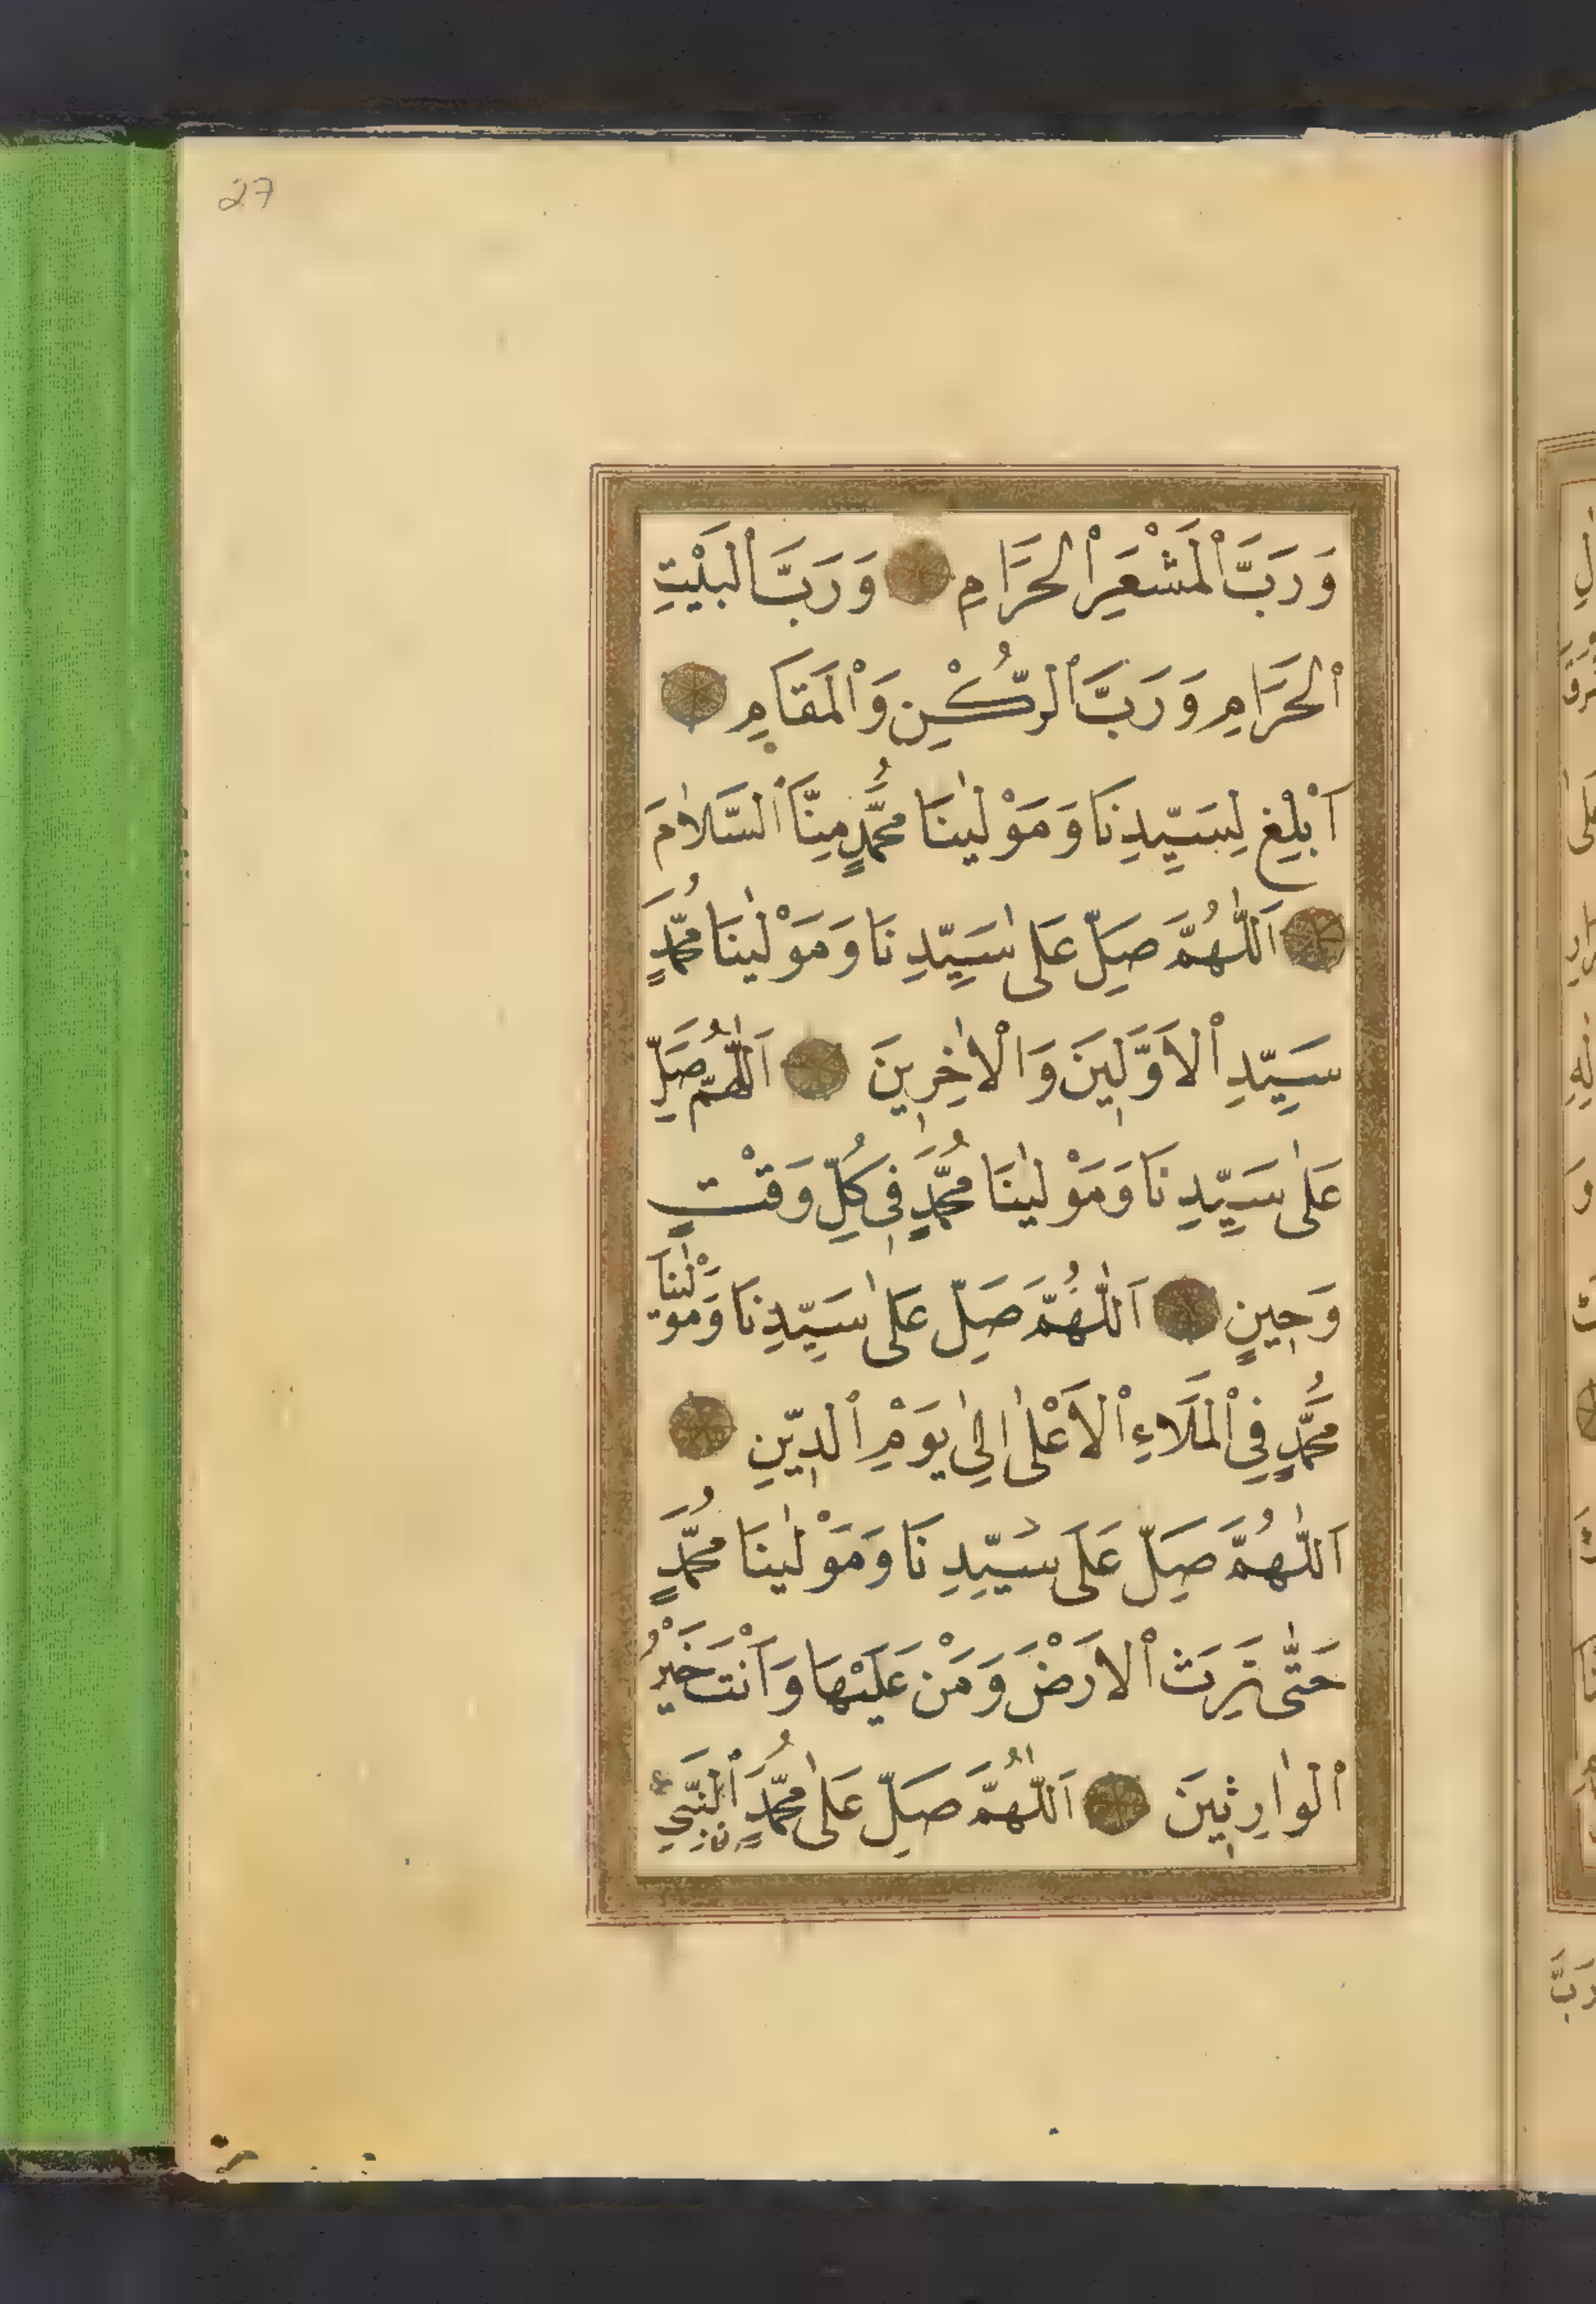 27
وَرَبَّ ٱلْمَشْعَرِ ٱلْحَرَامِ وَرَبَّ ٱلْبَيْتِ
ٱلْحَرَامِ وَرَبَّ ٱلرُّكْنِ وَٱلْمَقَامِ
اَبْلِغْ لِسَيِّدِنَا وَمَوْلٰينَا مُحَمَّدٍ مِنَّا ٱلسَّلَامَ
اَللّٰهُمَّ صَلِّ عَلٰى سَيِّدِنَا وَمَوْلٰينَا مُحَمَّدٍ
سَيِّدِ ٱلْاَوَّلِينَ وَالْاٰخِرِينَ اَللّٰهُمَّ صَلِّ
عَلٰى سَيِّدِنَا وَمَوْلٰينَا مُحَمَّدٍ فِى كُلِّ وَقْتٍ
وَحِينٍ اَللّٰهُمَّ صَلِّ عَلٰى سَيِّدِنَا وَمَوْلٰينَا
مُحَمَّدٍ فِى ٱلْمَلَاءِ ٱلْاَعْلٰى اِلٰى يَوْمِ ٱلدِّينِ
اَللّٰهُمَّ صَلِّ عَلَى سَيِّدِنَا وَمَوْلٰينَا مُحَمَّدٍ
حَتّٰى تَرِثَ ٱلْاَرْضَ وَمَنْ عَلَيْهَا وَاَنْتَ خَيْرُ
ٱلْوٰارِثِينَ اَللّٰهُمَّ صَلِّ عَلٰى مُحَمَّدٍ ٱلنَّبِيِّ